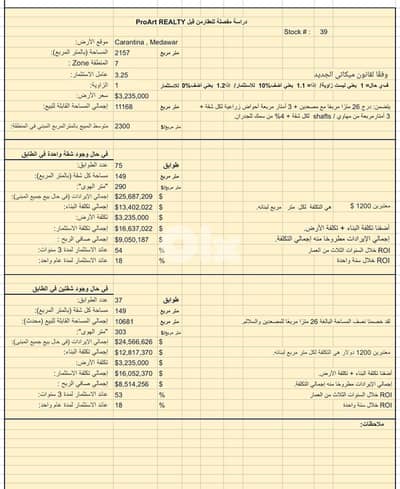 دراسة مفصلة للعقار من قبل ProArt REALTY
Stock # : 39
موقع الأرض: Carantina , Medawar
المساحة (بالمتر المربع): 2157 متر مربع
المنطقة Zone : 7
عامل الاستثمار: 3.25 وفقًا لقانون ميكاتي الجديد
الزاوية: 1 في حال= 1 يعني ليست زاوية/ اذا= 1.1 يعني اضف 10% للاستثمار/ اذا 1.2 يعني اضف 0% للاستثمار
سعر الأرض: $3,235,000
إجمالي المساحة القابلة للبيع: 11168 متر مربع يتضمن: درج 26 مترًا مربعًا مع مصعدين + 3 أمتار مربعة أحواض زراعية لكل شقة +
3 أمتار مربعة من مهاوي / shafts لكل شقة + 4% من سمك الجدران.
متوسط المبيع بالمتر المربع المبني في المنطقة: 2300 متر مربع/$
في حال وجود شقة واحدة في الطابق
عدد الطوابق: 75 طوابق
مساحة كل شقة (بالمتر المربع): 149 متر مربع
"متر الهوى": 290 متر مربع/$
إجمالي الإيرادات (في حال بيع جميع المبنى): $25,687,209 $
إجمالي تكلفة البناء: $13,402,022 $ معتبرين 1200 $ هي التكلفة لكل متر مربع لبنائه.
تكلفة الأرض: $3,235,000 $
إجمالي تكلفة الاستثمار: $16,637,022 $ أضفنا تكلفة البناء + تكلفة الأرض.
إجمالي صافي الربح: $9,050,187 $ إجمالي الإيرادات مطروحًا منه إجمالي التكلفة.
عائد الاستثمار لمدة 3 سنوات: 54 % ROI خلال السنوات الثلاث من العمار
عائد الاستثمار لمدة عام واحد: 18 % ROI خلال سنة واحدة
في حال وجود شقتين في الطابق
عدد الطوابق: 37 طوابق
مساحة كل شقة (بالمتر المربع): 149 متر مربع
إجمالي المساحة القابلة للبيع (محدث): 10681 متر مربع لقد خصمنا نصف المساحة البالغة 26 مترًا مربعًا للمصعدين والسلالم.
"متر الهوى": 303 متر مربع/$
إجمالي الإيرادات (في حال بيع جميع المبنى): $24,566,626 $
إجمالي تكلفة البناء: $12,817,370 $ معتبرين 1200 دولار هي التكلفة لكل متر مربع لبنائه.
تكلفة الأرض: $3,235,000 $
إجمالي تكلفة الاستثمار: $16,052,370 $ أضفنا تكلفة البناء + تكلفة الأرض.
إجمالي صافي الربح : $8,514,256 $ إجمالي الإيرادات مطروحًا منه إجمالي التكلفة.
عائد الاستثمار لمدة 3 سنوات: 53 % ROI خلال السنوات الثلاث من العمار
عائد الاستثمار لمدة عام واحد: 18 % ROI خلال سنة واحدة
ملاحظات: